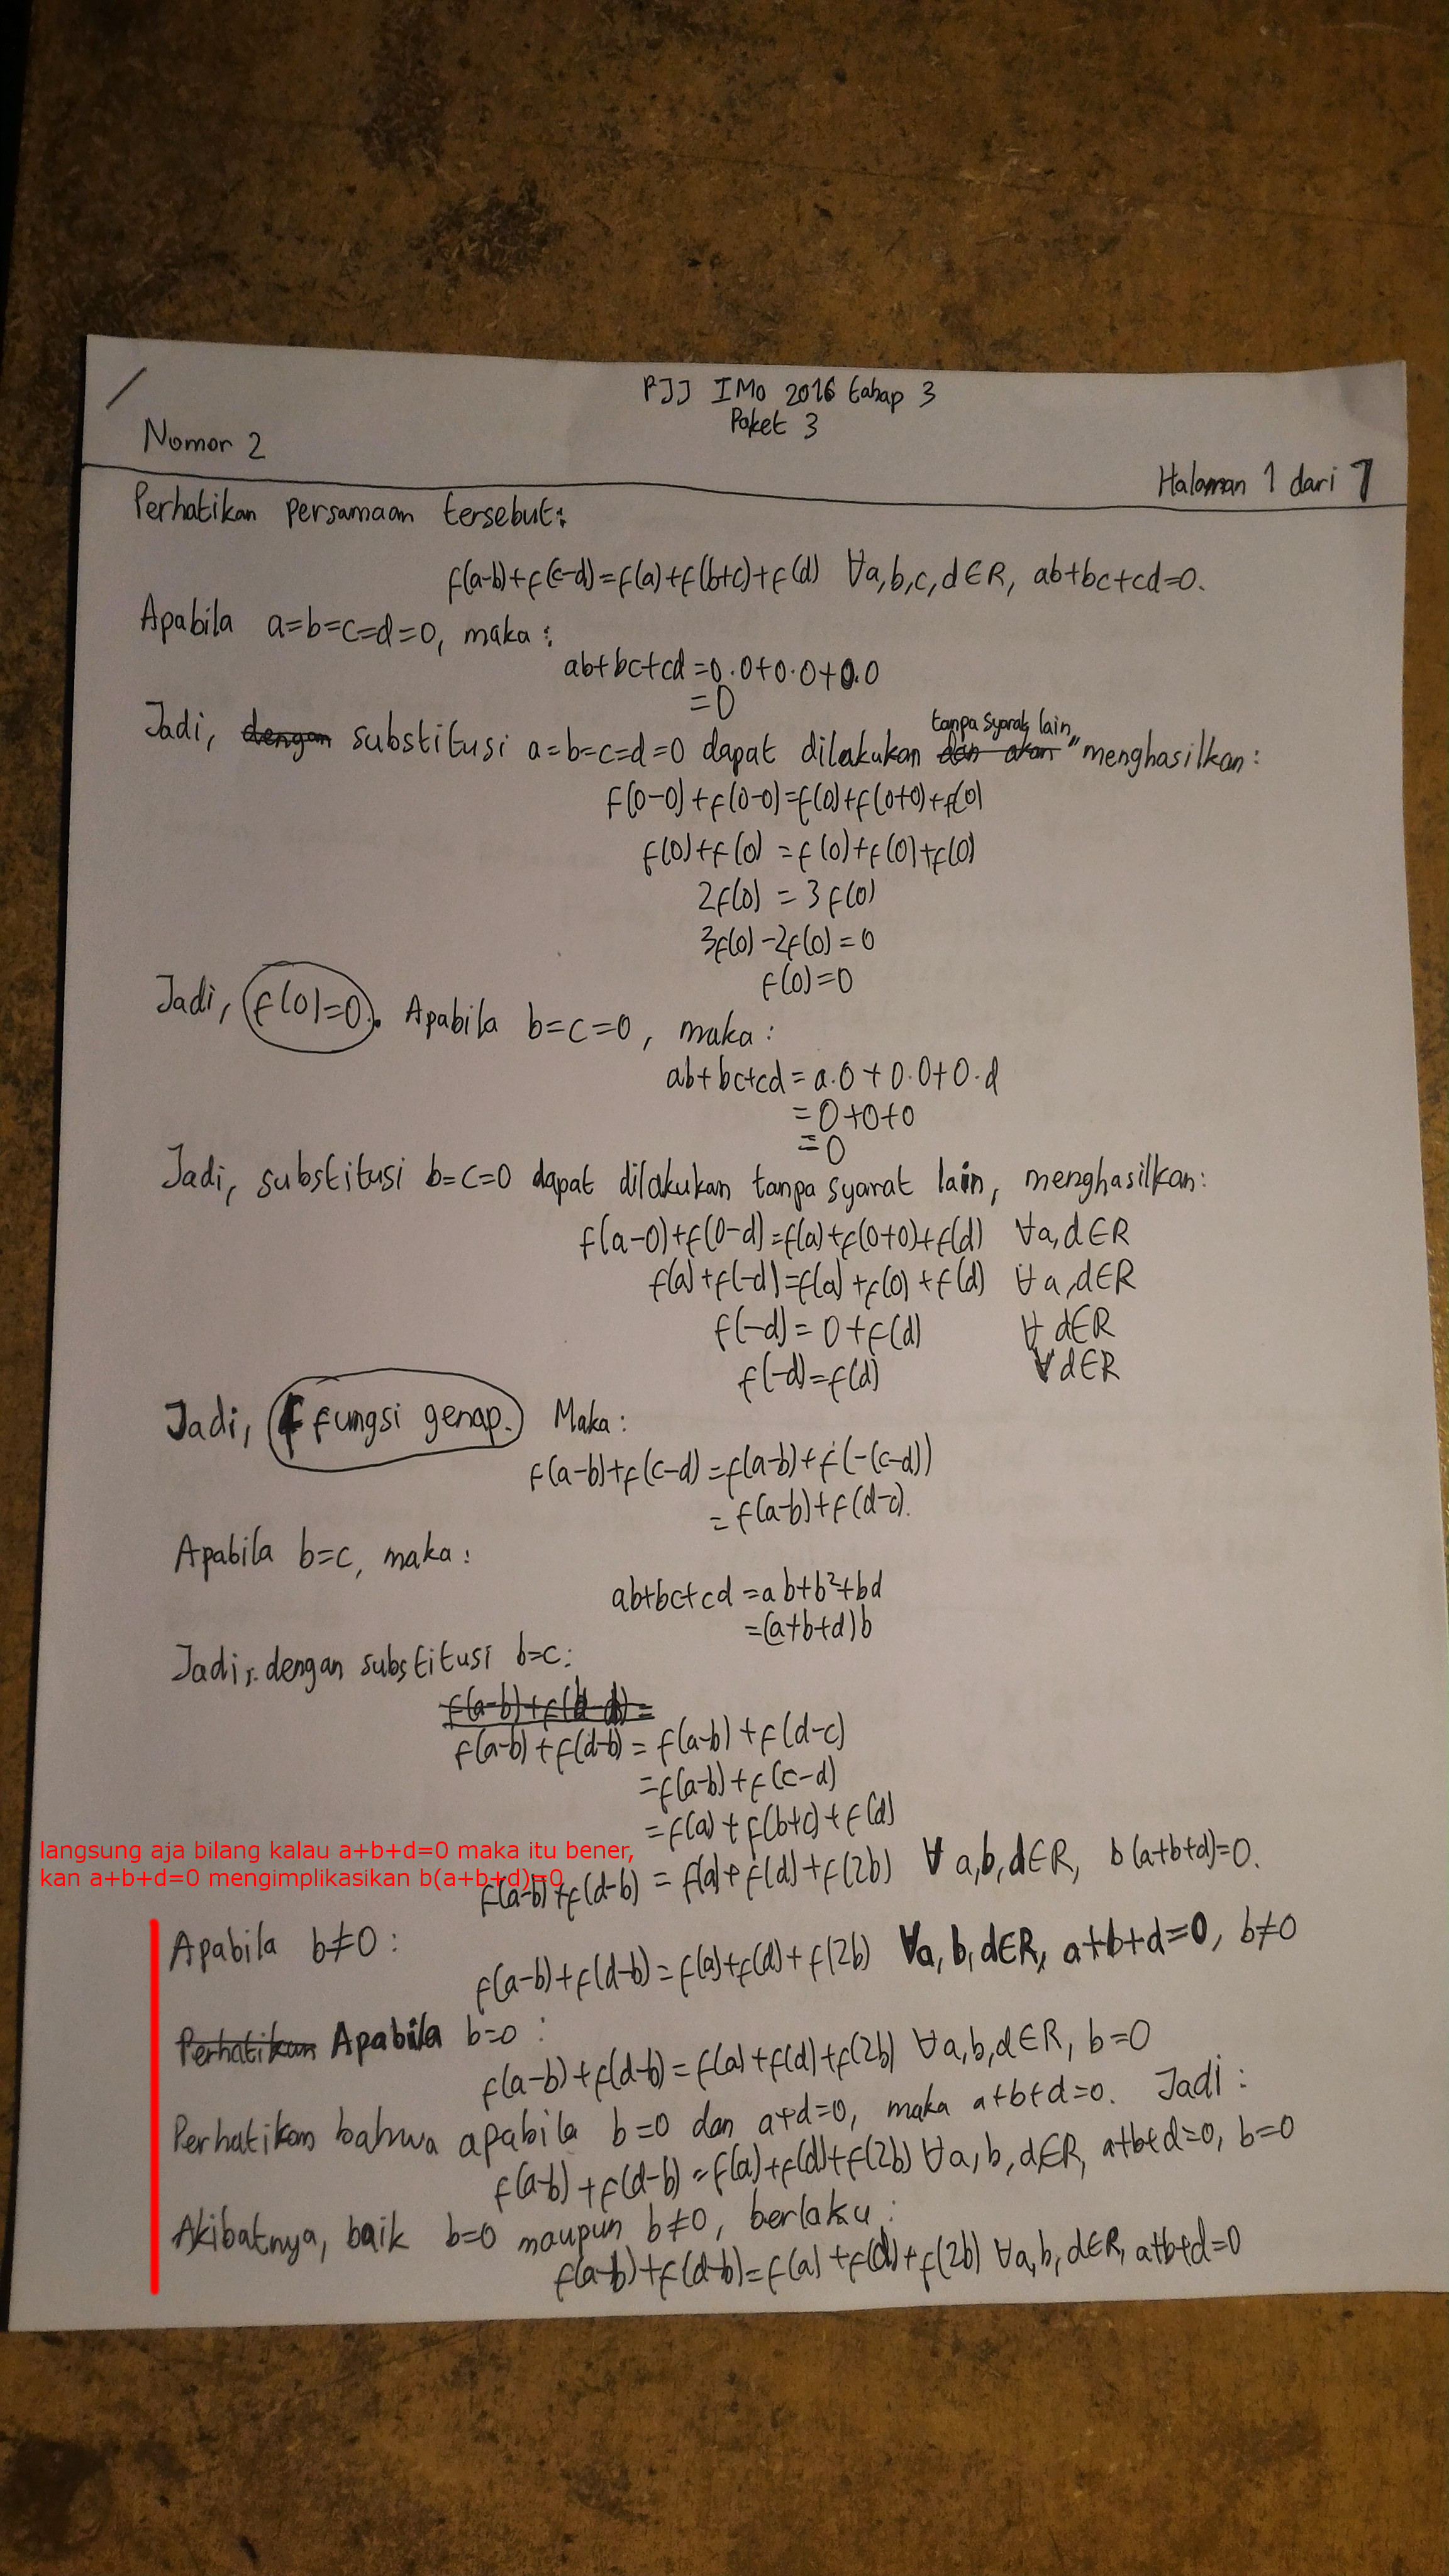 PJJ IMO 2016 tahap 3
Paket 3
Nomor 2
Halaman 1 dari 7
Perhatikan persamaan tersebut:
f(a-b)+f(c-d)=f(a)+f(b+c)+f(d) ∀a,b,c,d∈R, ab+bc+cd=0.
Apabila a=b=c=d=0, maka:
ab+bc+cd=0.0+0.0+0.0
=0
Jadi, dengan substitusi a=b=c=d=0 dapat dilakukan dan akan tanpa syarat lain, menghasilkan:
f(0-0)+f(0-0)=f(0)+f(0+0)+f(0)
f(0)+f(0)=f(0)+f(0)+f(0)
2f(0)=3f(0)
3f(0)-2f(0)=0
f(0)=0
Jadi, f(0)=0. Apabila b=c=0, maka:
ab+bc+cd=a.0+0.0+0.d
=0+0+0
=0
Jadi, substitusi b=c=0 dapat dilakukan tanpa syarat lain, menghasilkan:
f(a-0)+f(0-d)=f(a)+f(0+0)+f(d) ∀a,d∈R
f(a)+f(-d)=f(a)+f(0)+f(d) ∀a,d∈R
f(-d)=0+f(d) ∀d∈R
f(-d)=f(d) ∀d∈R
Jadi, f fungsi genap. Maka:
f(a-b)+f(c-d)=f(a-b)+f(-(c-d))
=f(a-b)+f(d-c).
Apabila b=c, maka:
ab+bc+cd=ab+b²+bd
=(a+b+d)b
Jadi, dengan substitusi b=c:
f(a-b)+f(d-b)=f(a-b)+f(d-c)
=f(a-b)+f(c-d)
=f(a)+f(b+c)+f(d)
langsung aja bilang kalau a+b+d=0 maka itu bener,
kan a+b+d=0 mengimplikasikan b(a+b+d)=0
f(a-b)+f(d-b)=f(a)+f(d)+f(2b) ∀a,b,d∈R, b(a+b+d)=0.
Apabila b≠0:
f(a-b)+f(d-b)=f(a)+f(d)+f(2b) ∀a,b,d∈R, a+b+d=0, b≠0
Perhatikan Apabila b=0:
f(a-b)+f(d-b)=f(a)+f(d)+f(2b) ∀a,b,d∈R, b=0
Perhatikan bahwa apabila b=0 dan a+d=0, maka a+b+d=0. Jadi:
f(a-b)+f(d-b)=f(a)+f(d)+f(2b) ∀a,b,d∈R, a+b+d=0, b=0
Akibatnya, baik b=0 maupun b≠0, berlaku:
f(a-b)+f(d-b)=f(a)+f(d)+f(2b) ∀a,b,d∈R, a+b+d=0